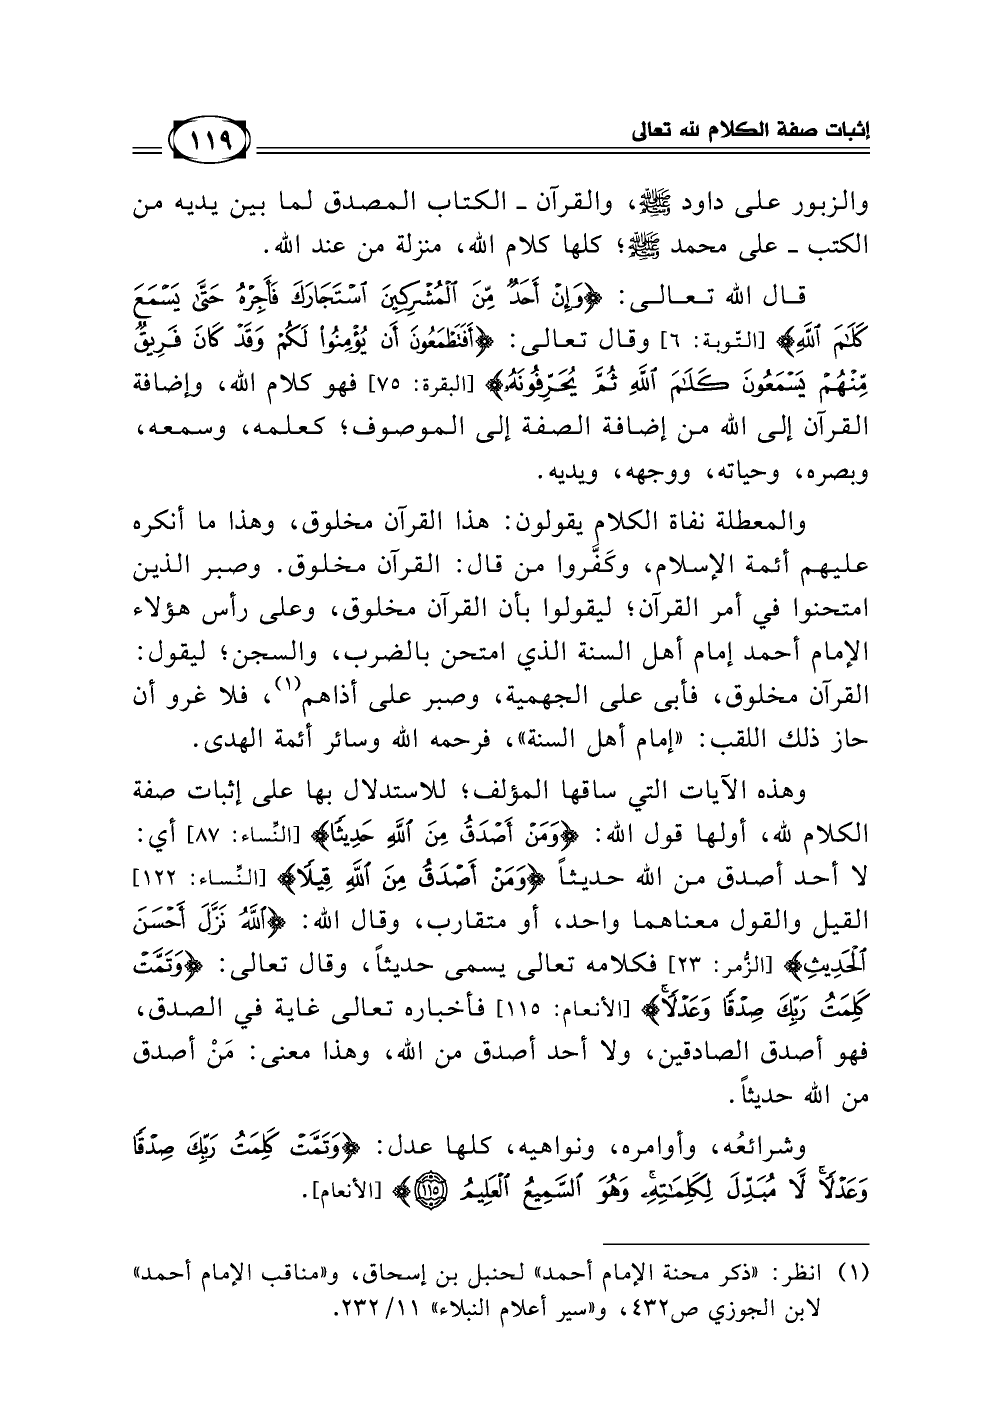 إثبات صفة الكلام لله تعالى
١١٩
والزبور على داود ﷺ، والقرآن ـ الكتاب المصدق لما بين يديه من
الكتب ـ على محمد ﷺ؛ كلها كلام الله، منزلة من عند الله.
قال الله تعالى: ﴿وَإِنْ أَحَدٌ مِّنَ ٱلْمُشْرِكِينَ ٱسْتَجَارَكَ فَأَجِرْهُ حَتَّىٰ يَسْمَعَ
كَلَٰمَ ٱللَّهِ﴾ [التّوبة: ٦] وقال تعالى: ﴿أَفَتَطْمَعُونَ أَن يُؤْمِنُوا۟ لَكُمْ وَقَدْ كَانَ فَرِيقٌ
مِّنْهُمْ يَسْمَعُونَ كَلَٰمَ ٱللَّهِ ثُمَّ يُحَرِّفُونَهُۥ﴾ [البقرة: ٧٥] فهو كلام الله، وإضافة
القرآن إلى الله من إضافة الصفة إلى الموصوف؛ كعلمه، وسمعه،
وبصره، وحياته، ووجهه، ويديه.
والمعطلة نفاة الكلام يقولون: هذا القرآن مخلوق، وهذا ما أنكره
عليهم أئمة الإسلام، وكَفَّروا من قال: القرآن مخلوق. وصبر الذين
امتحنوا في أمر القرآن؛ ليقولوا بأن القرآن مخلوق، وعلى رأس هؤلاء
الإمام أحمد إمام أهل السنة الذي امتحن بالضرب، والسجن؛ ليقول:
القرآن مخلوق، فأبى على الجهمية، وصبر على أذاهم(١)، فلا غرو أن
حاز ذلك اللقب: «إمام أهل السنة»، فرحمه الله وسائر أئمة الهدى.
وهذه الآيات التي ساقها المؤلف؛ للاستدلال بها على إثبات صفة
الكلام لله، أولها قول الله: ﴿وَمَنْ أَصْدَقُ مِنَ ٱللَّهِ حَدِيثًا﴾ [النِّساء: ٨٧] أي:
لا أحد أصدق من الله حديثاً ﴿وَمَنْ أَصْدَقُ مِنَ ٱللَّهِ قِيلًا﴾ [النِّساء: ١٢٢]
القيل والقول معناهما واحد، أو متقارب، وقال الله: ﴿ٱللَّهُ نَزَّلَ أَحْسَنَ
ٱلْحَدِيثِ﴾ [الزُّمر: ٢٣] فكلامه تعالى يسمى حديثاً، وقال تعالى: ﴿وَتَمَّتْ
كَلِمَتُ رَبِّكَ صِدْقًا وَعَدْلًا ۚ﴾ [الأنعام: ١١٥] فأخباره تعالى غاية في الصدق،
فهو أصدق الصادقين، ولا أحد أصدق من الله، وهذا معنى: مَنْ أصدق
من الله حديثاً.
وشرائعُه، وأوامره، ونواهيه، كلها عدل: ﴿وَتَمَّتْ كَلِمَتُ رَبِّكَ صِدْقًا
وَعَدْلًا ۚ لَّا مُبَدِّلَ لِكَلِمَٰتِهِۦ ۚ وَهُوَ ٱلسَّمِيعُ ٱلْعَلِيمُ ١١٥﴾ [الأنعام].
(١) انظر: «ذكر محنة الإمام أحمد» لحنبل بن إسحاق، و«مناقب الإمام أحمد»
لابن الجوزي ص٤٣٢، و«سير أعلام النبلاء» ١١/ ٢٣٢.